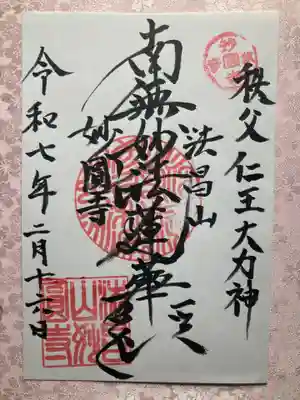 秩父 仁王大力神
法昌山
南無妙法蓮華経
妙圓寺
令和七年二月十六日
法昌
山妙
圓寺